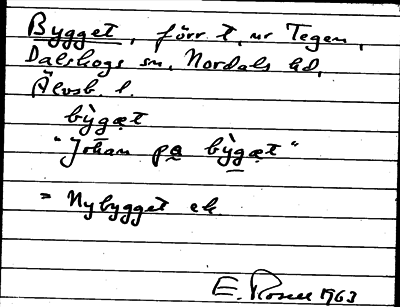 Bygget, förr t. ur Tegen,
Dalskogs sn, Nordals hd,
Älvsb. l.
bỳgæt
"Johan pa bỳgæt"
= Nybygget
E. Rosell 1963